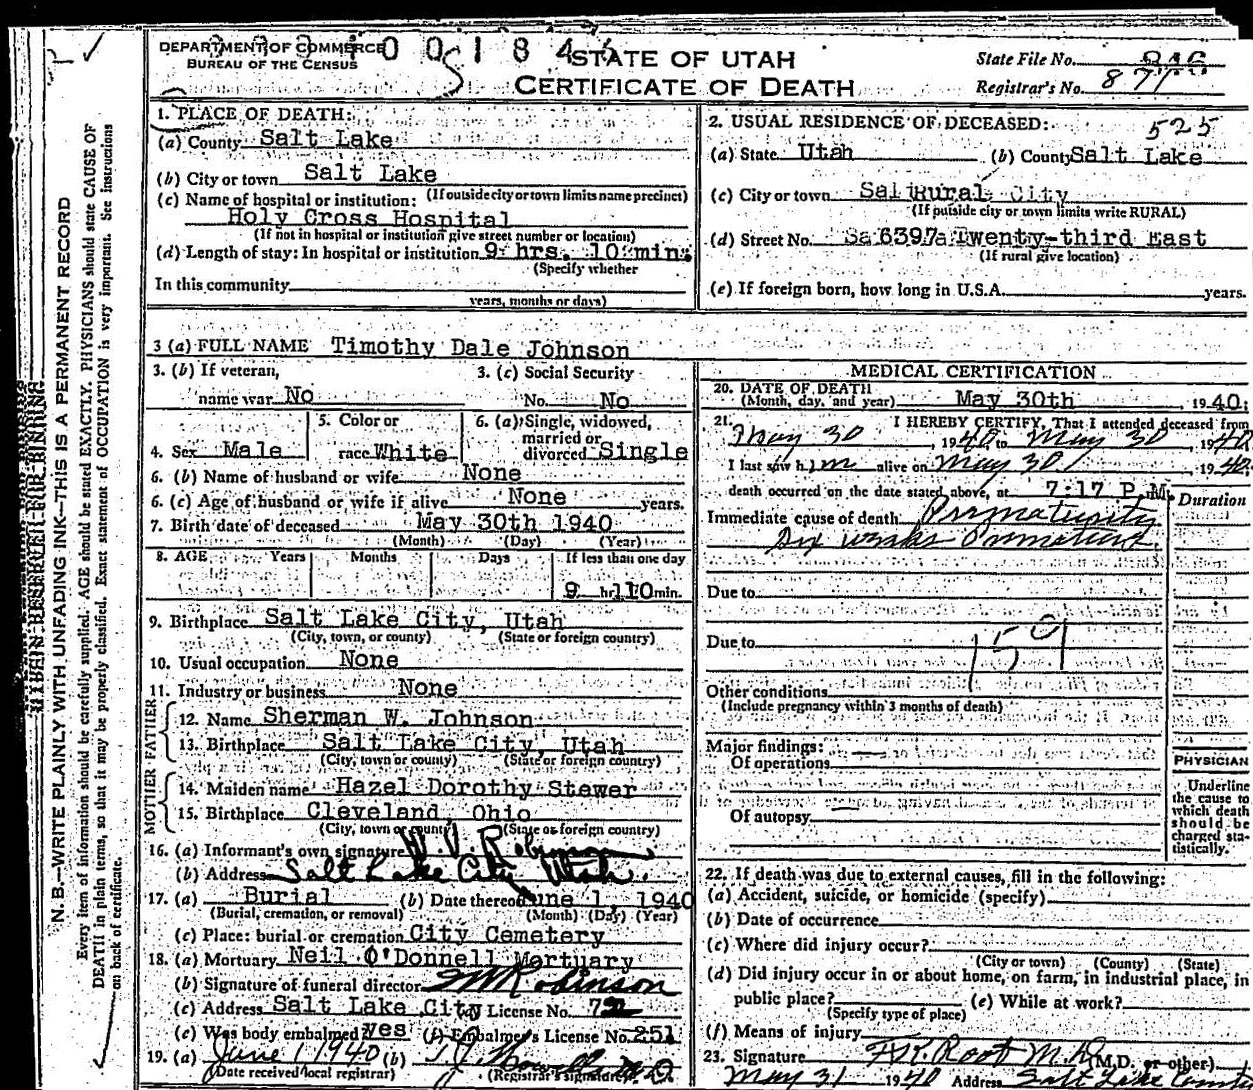 DEPARTMENT OF COMMERCE
BUREAU OF THE CENSUS
STATE OF UTAH
CERTIFICATE OF DEATH
State File No.
Registrar's No. 877
1. PLACE OF DEATH:
(a) County Salt Lake
(b) City or town Salt Lake
(If outside city or town limits name precinct)
(c) Name of hospital or institution:
Holy Cross Hospital
(If not in hospital or institution give street number or location)
(d) Length of stay: In hospital or institution 9 hrs. 10 min.
(Specify whether
In this community
years, months or days)
2. USUAL RESIDENCE OF DECEASED: 525
(a) State Utah (b) County Salt Lake
(c) City or town Rural City
(If outside city or town limits write RURAL)
(d) Street No. 6397 Twenty-third East
(If rural give location)
(e) If foreign born, how long in U.S.A. years.
3 (a) FULL NAME Timothy Dale Johnson
3. (b) If veteran,
name war No
3. (c) Social Security
No. No
4. Sex Male
5. Color or
race White
6. (a) Single, widowed,
married or
divorced Single
6. (b) Name of husband or wife None
6. (c) Age of husband or wife if alive None years.
7. Birth date of deceased May 30th 1940
(Month) (Day) (Year)
8. AGE Years Months Days If less than one day
9 hr. 10 min.
9. Birthplace Salt Lake City, Utah
(City, town, or county) (State or foreign country)
10. Usual occupation None
11. Industry or business None
FATHER
12. Name Sherman W. Johnson
13. Birthplace Salt Lake City, Utah
(City, town or county) (State or foreign country)
MOTHER
14. Maiden name Hazel Dorothy Stewer
15. Birthplace Cleveland, Ohio
(City, town or county) (State or foreign country)
16. (a) Informant's own signature W. V. Robinson
(b) Address Salt Lake City Utah.
17. (a) Burial (b) Date thereof June 1, 1940
(Burial, cremation, or removal) (Month) (Day) (Year)
(c) Place: burial or cremation City Cemetery
18. (a) Mortuary Neil O'Donnell Mortuary
(b) Signature of funeral director Robinson
(c) Address Salt Lake City (d) License No.
(e) Was body embalmed yes (f) Embalmer's License No. 251
19. (a) June 1 1940 (b) M.D.
(Date received local registrar) (Registrar's signature)
MEDICAL CERTIFICATION
20. DATE OF DEATH
(Month, day, and year) May 30th, 1940;
21. I HEREBY CERTIFY, That I attended deceased from
May 30, 1940 to May 30, 1940
I last saw him alive on May 30, 1940.
death occurred on the date stated above, at 7:17 P.M. Duration
Immediate cause of death Prematurity
Six weeks Premature.
Due to
Due to 159
Other conditions
(Include pregnancy within 3 months of death)
Major findings:
Of operations
Of autopsy
PHYSICIAN
Underline
the cause to
which death
should be
charged sta-
tistically.
22. If death was due to external causes, fill in the following:
(a) Accident, suicide, or homicide (specify)
(b) Date of occurrence
(c) Where did injury occur?
(City or town) (County) (State)
(d) Did injury occur in or about home, on farm, in industrial place, in
public place? (e) While at work?
(Specify type of place)
(f) Means of injury
23. Signature Root M.D. (M.D. or other)
May 31 1940 Address Salt Lake
N. B.—WRITE PLAINLY WITH UNFADING INK—THIS IS A PERMANENT RECORD
Every item of information should be carefully supplied. AGE should be stated EXACTLY. PHYSICIANS should state CAUSE OF
DEATH in plain terms, so that it may be properly classified. Exact statement of OCCUPATION is very important. See instructions
on back of certificate.